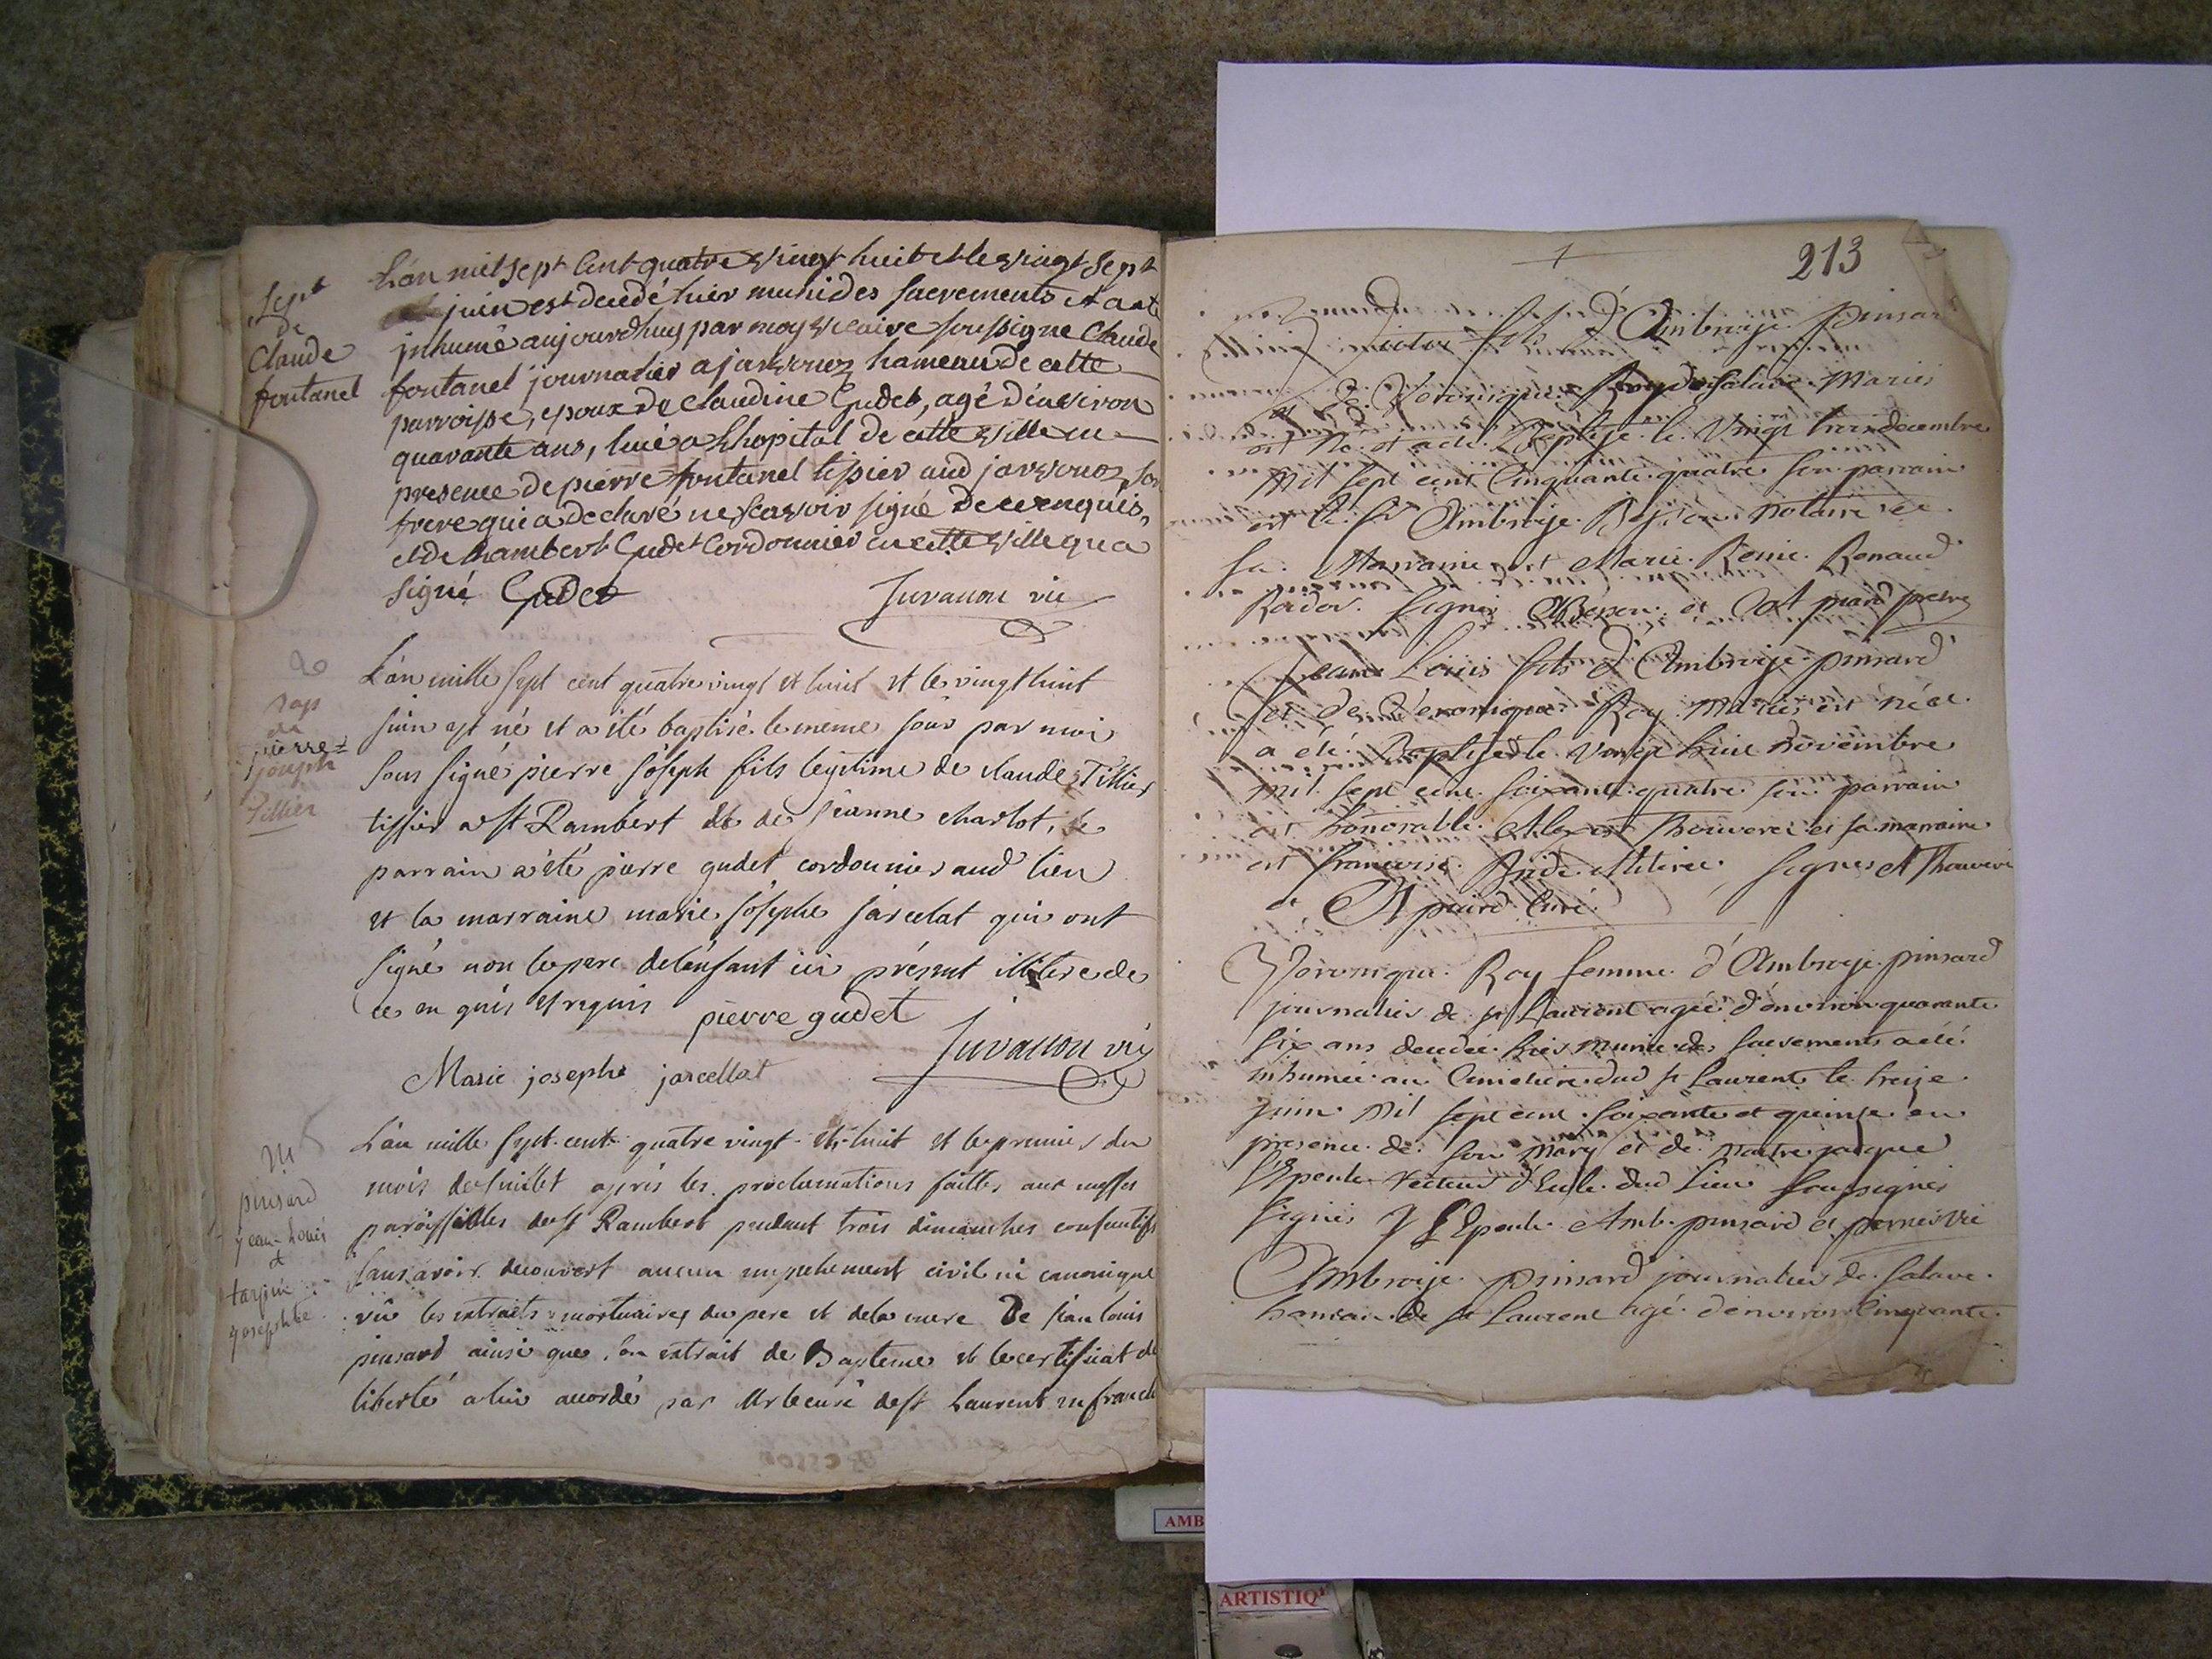 Sept
de
Claude
fontanel
L'an mil sept cent quatre vingt huit et le vingt sept
juin est decedé hier muni des sacrements et a eté
inhumé aujourdhuy par moy vicaire soussigné Claude
fontanel journalier a javornoz hameau de cette
parroisse, epoux de Claudine Gudet, agé d'environ
quarante ans, hué a Lhopital de cette ville en
presence de pierre fontanel tissier aud javornoz son
frere qui a declaré ne scavoir signé de ce enquis,
et de Rambert Gudet Cordonnier en cette ville qui a
signé Gudet Juvanon vic
Bap
de
pierre=
joseph
Tillier
L'an mille sept cent quatre vingt et huit et le vingt huit
juin est né et a été baptisé le meme jour par moi
sous signé pierre joseph fils legitime de claude Tillier
tissier a st Rambert et de jeanne charlot, le
parrain a été pierre gudet cordonnier aud lieu
et la marraine marie josephe jarcelat qui ont
signé non le pere de l'enfant ici présent illiteré de
ce en quis et requis pierre gudet
Marie josephe jarcellat Juvanon vic
M
pinsard
jean-Louis
et
josephte
L'an mille sept cent quatre vingt et huit et le premier du
mois de juillet après les proclamations faittes aux messes
paroissialles de st Rambert pendant trois dimanches consecutifs
sans avoir decouvert aucun empechement civil ni canonique
vû les extraits mortuaires du pere et de la mere De jean louis
pinsard ainsi que son extrait de Bapteme et le certificat de
liberté a lui accordé par Mr le curé de st Laurent en franche
213
Victor fils d'Ambroise pinsard
et de Veronique Roy de Salave Mariés
est né et a été Baptisé le Vingt trois decembre
mil sept cent Cinquante quatre son parrain
est le sr Ambroise notaire
sa Marraine est Marie Renaud
signés et
Jean Louis fils d'Ambroise pinsard
et de Véronique Roy Mariés est né et
a été Baptisé le Vingt huit Novembre
mil sept cent soixante quatre son parrain
est honorable Thouverez et sa marraine
est francoise signés
et piard Curé
Véronique Roy femme d'Ambroise pinsard
journalier de st Laurent agée d'environ quarante
six ans decedée hier munie des sacrements a été
inhumée au Cimetiere dud st Laurent le treize
juin Mil sept cent soixante et quinze en
presence de son mary et de maitre jacque
L'Epeule recteur d'Ecole dud Lieu soussignés
signés J L'Epeule Amb. pinsard et vic
Ambroise pinsard journalier de Salave
hameau de st Laurent agé d'environ Cinquante
AMB
ARTISTIQ